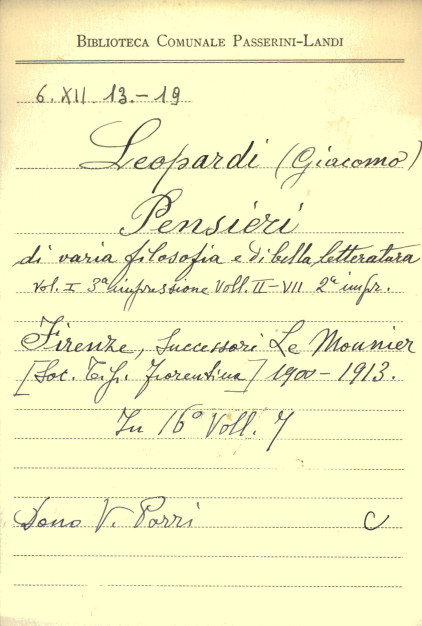 BIBLIOTECA COMUNALE PASSERINI-LANDI
6. XII. 13.-19
Leopardi (Giacomo)
Pensieri
di varia filosofia e di bella letteratura
vol. I 3ª impressione Voll. II-VII 2ª impr.
Firenze, Successori Le Monnier
[Soc. Tip. Fiorentina] 1900-1913.
In 16° Voll. 7
Dono V. Porri C